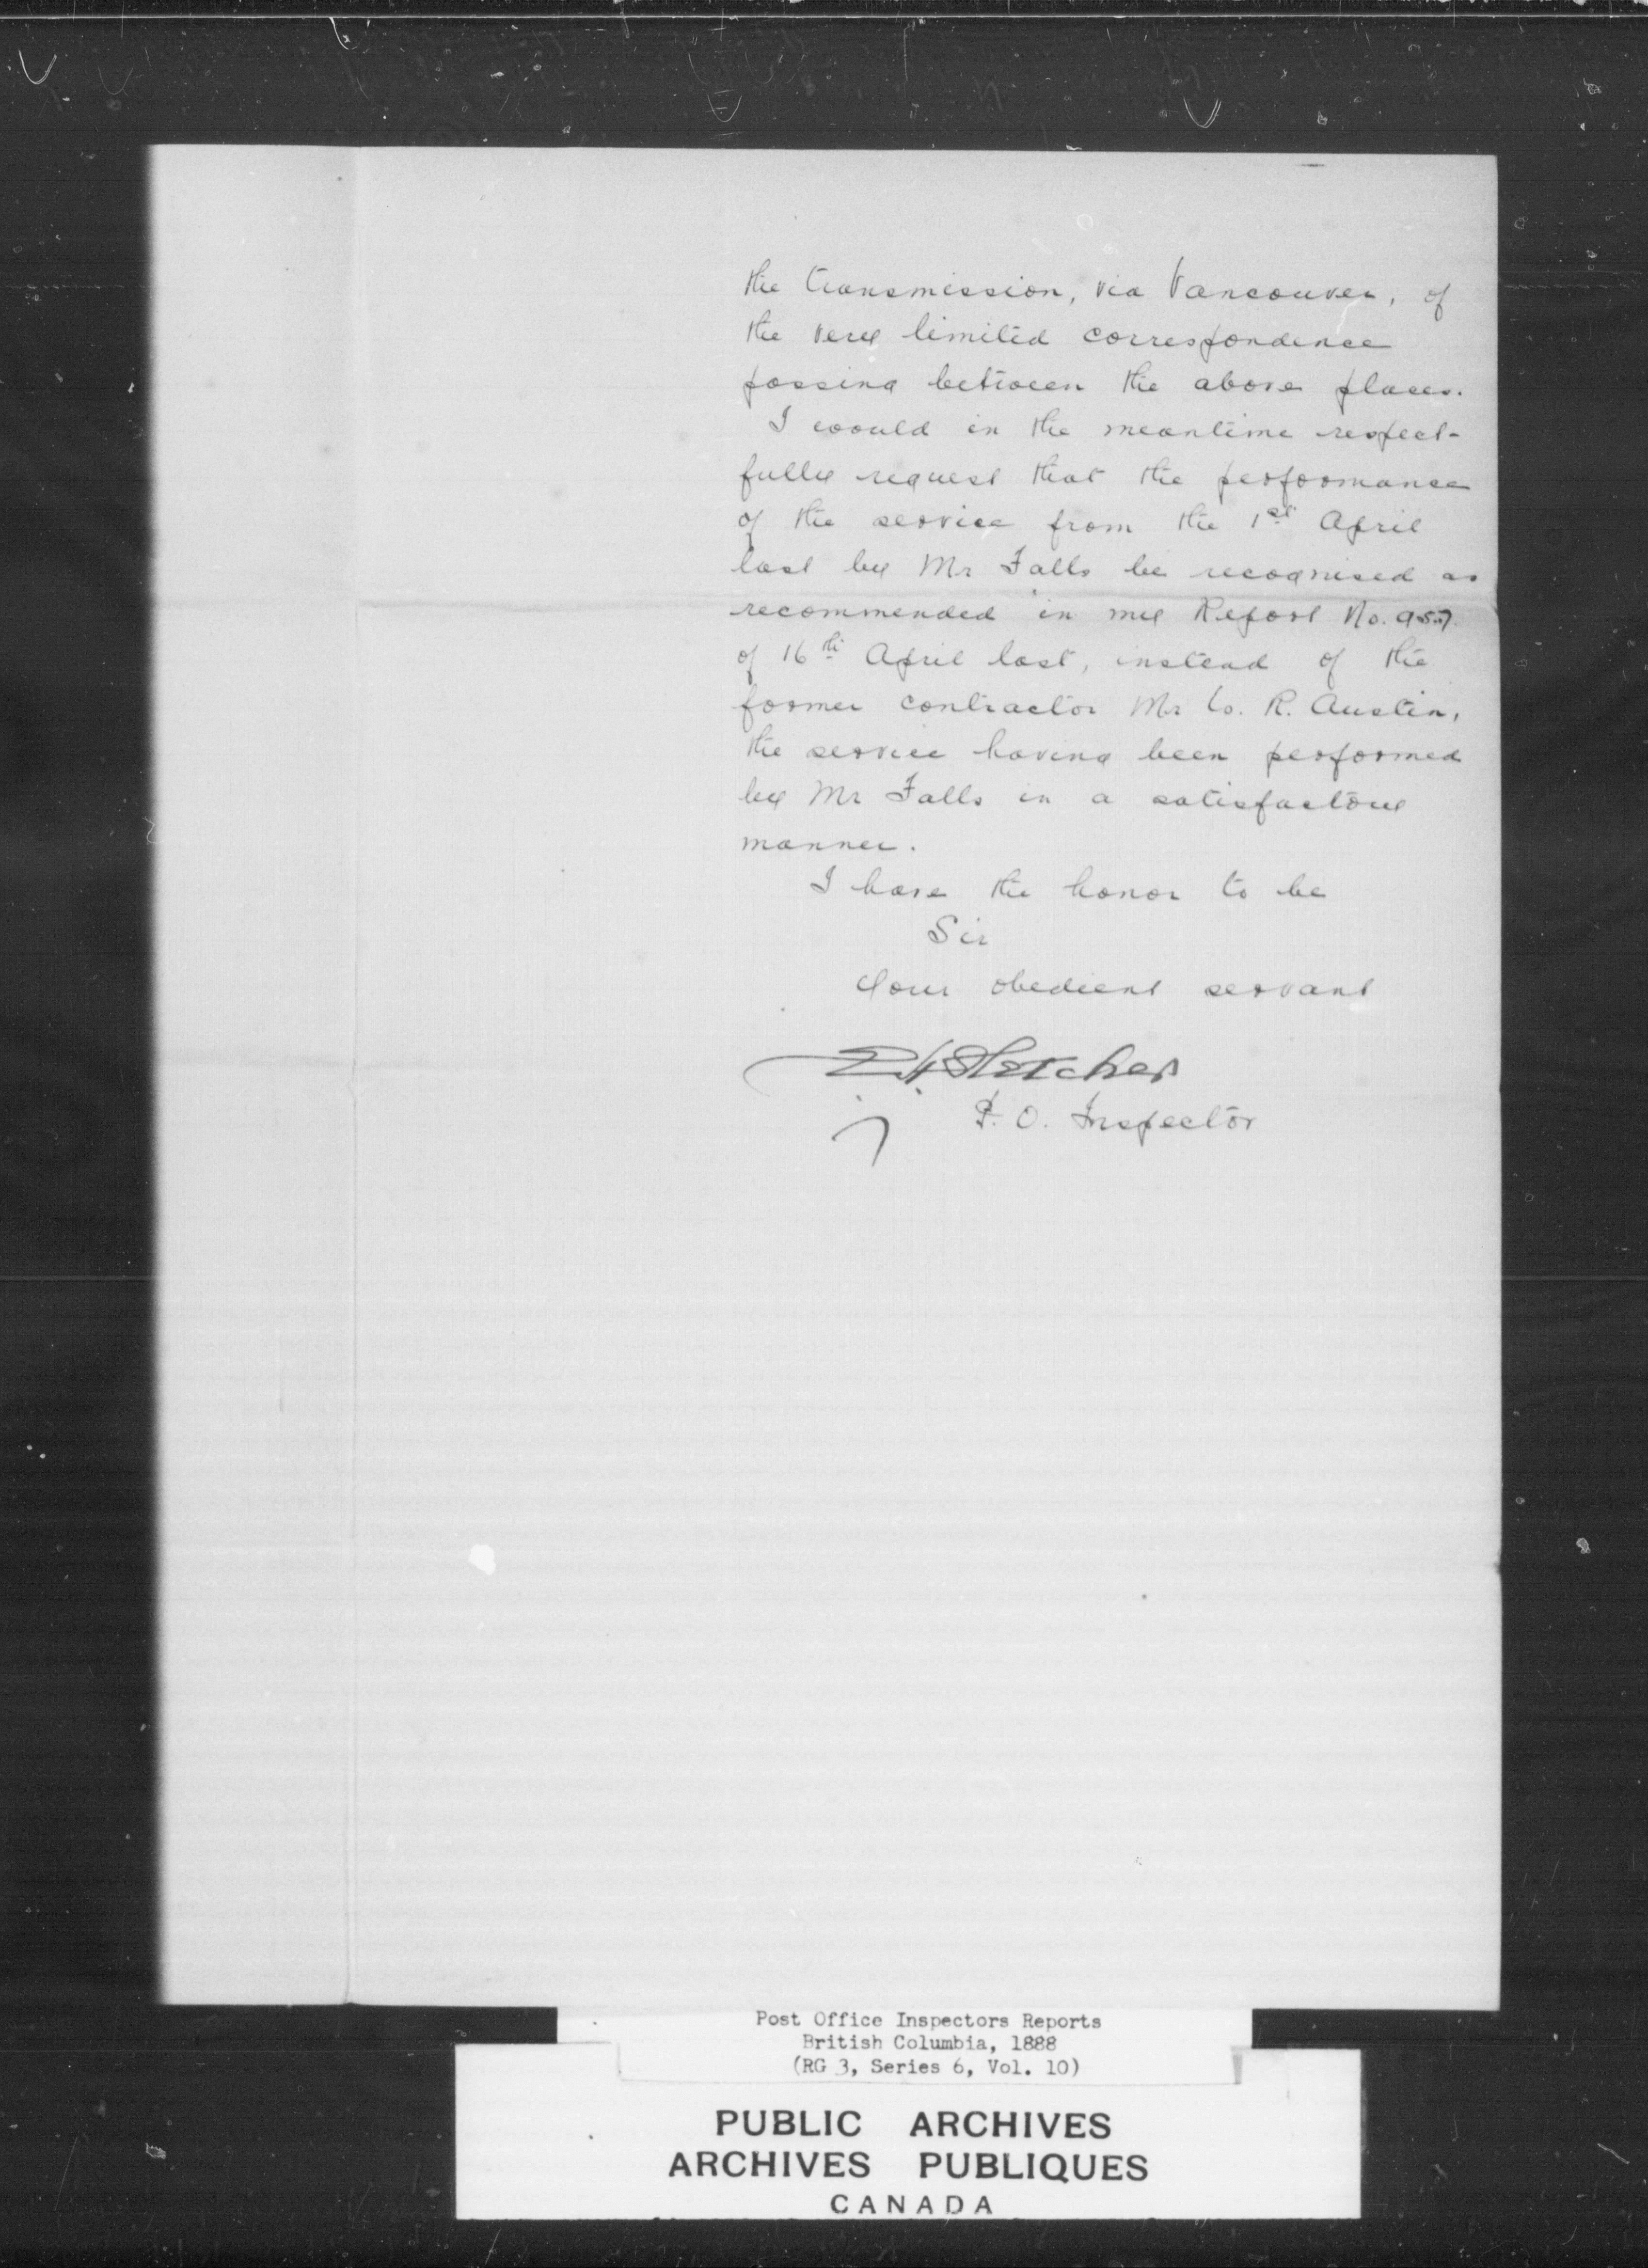 the transmission, via Vancouver, of
the very limited correspondence
passing between the above places.
I would in the meantime respect-
fully request that the performance
of the service from the 1st April
last by Mr Falls be recognised as
recommended in my Report No. 957
of 16th April last, instead of the
former contractor Mr W. R. Austin,
the service having been performed
by Mr Falls in a satisfactory
manner.
I have the honor to be
Sir
Your obedient servant
E H Fletcher
P. O. Inspector
Post Office Inspectors Reports
British Columbia, 1888
(RG 3, Series 6, Vol. 10)
PUBLIC ARCHIVES
ARCHIVES PUBLIQUES
CANADA